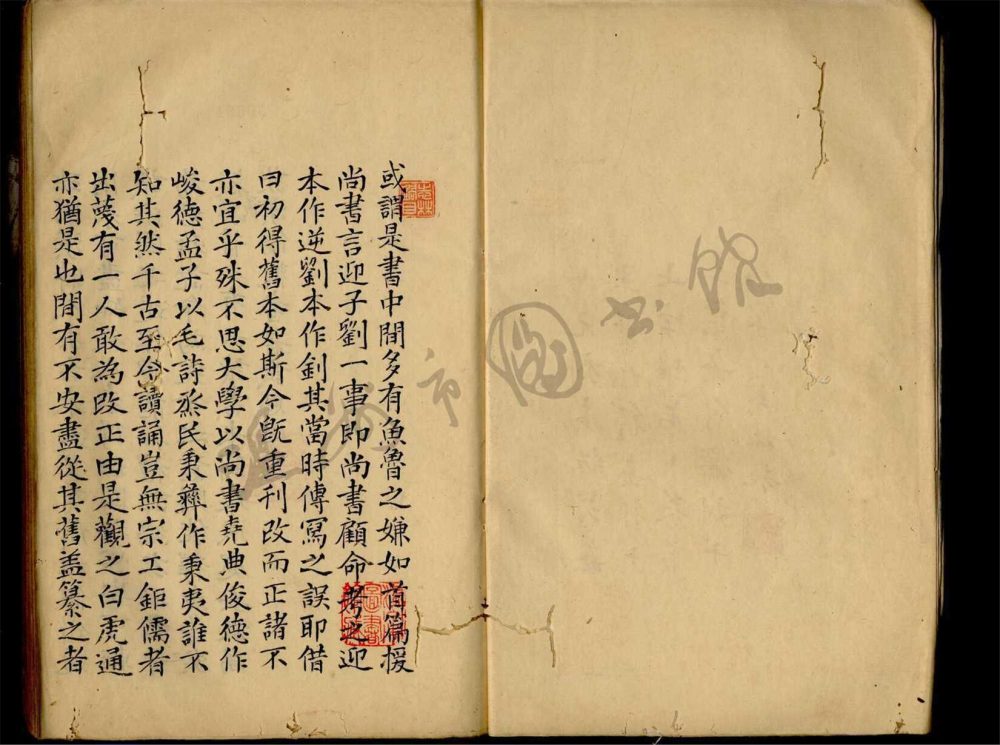 或謂是書中間多有魚魯之嫌如首篇援
尚書言迎子劉一事即尚書顧命考之迎
本作逆劉本作釗其當時傳寫之誤耶借
曰初得舊本如斯今旣重刊改而正諸不
亦宜乎殊不思大學以尚書堯典俊德作
峻德孟子以毛詩烝民秉彝作秉夷誰不
知其然千古至今讀誦豈無宗工鉅儒者
出蔑有一人敢為改正由是觀之白虎通
亦猶是也間有不安盡從其舊盖纂之者
市圖书館